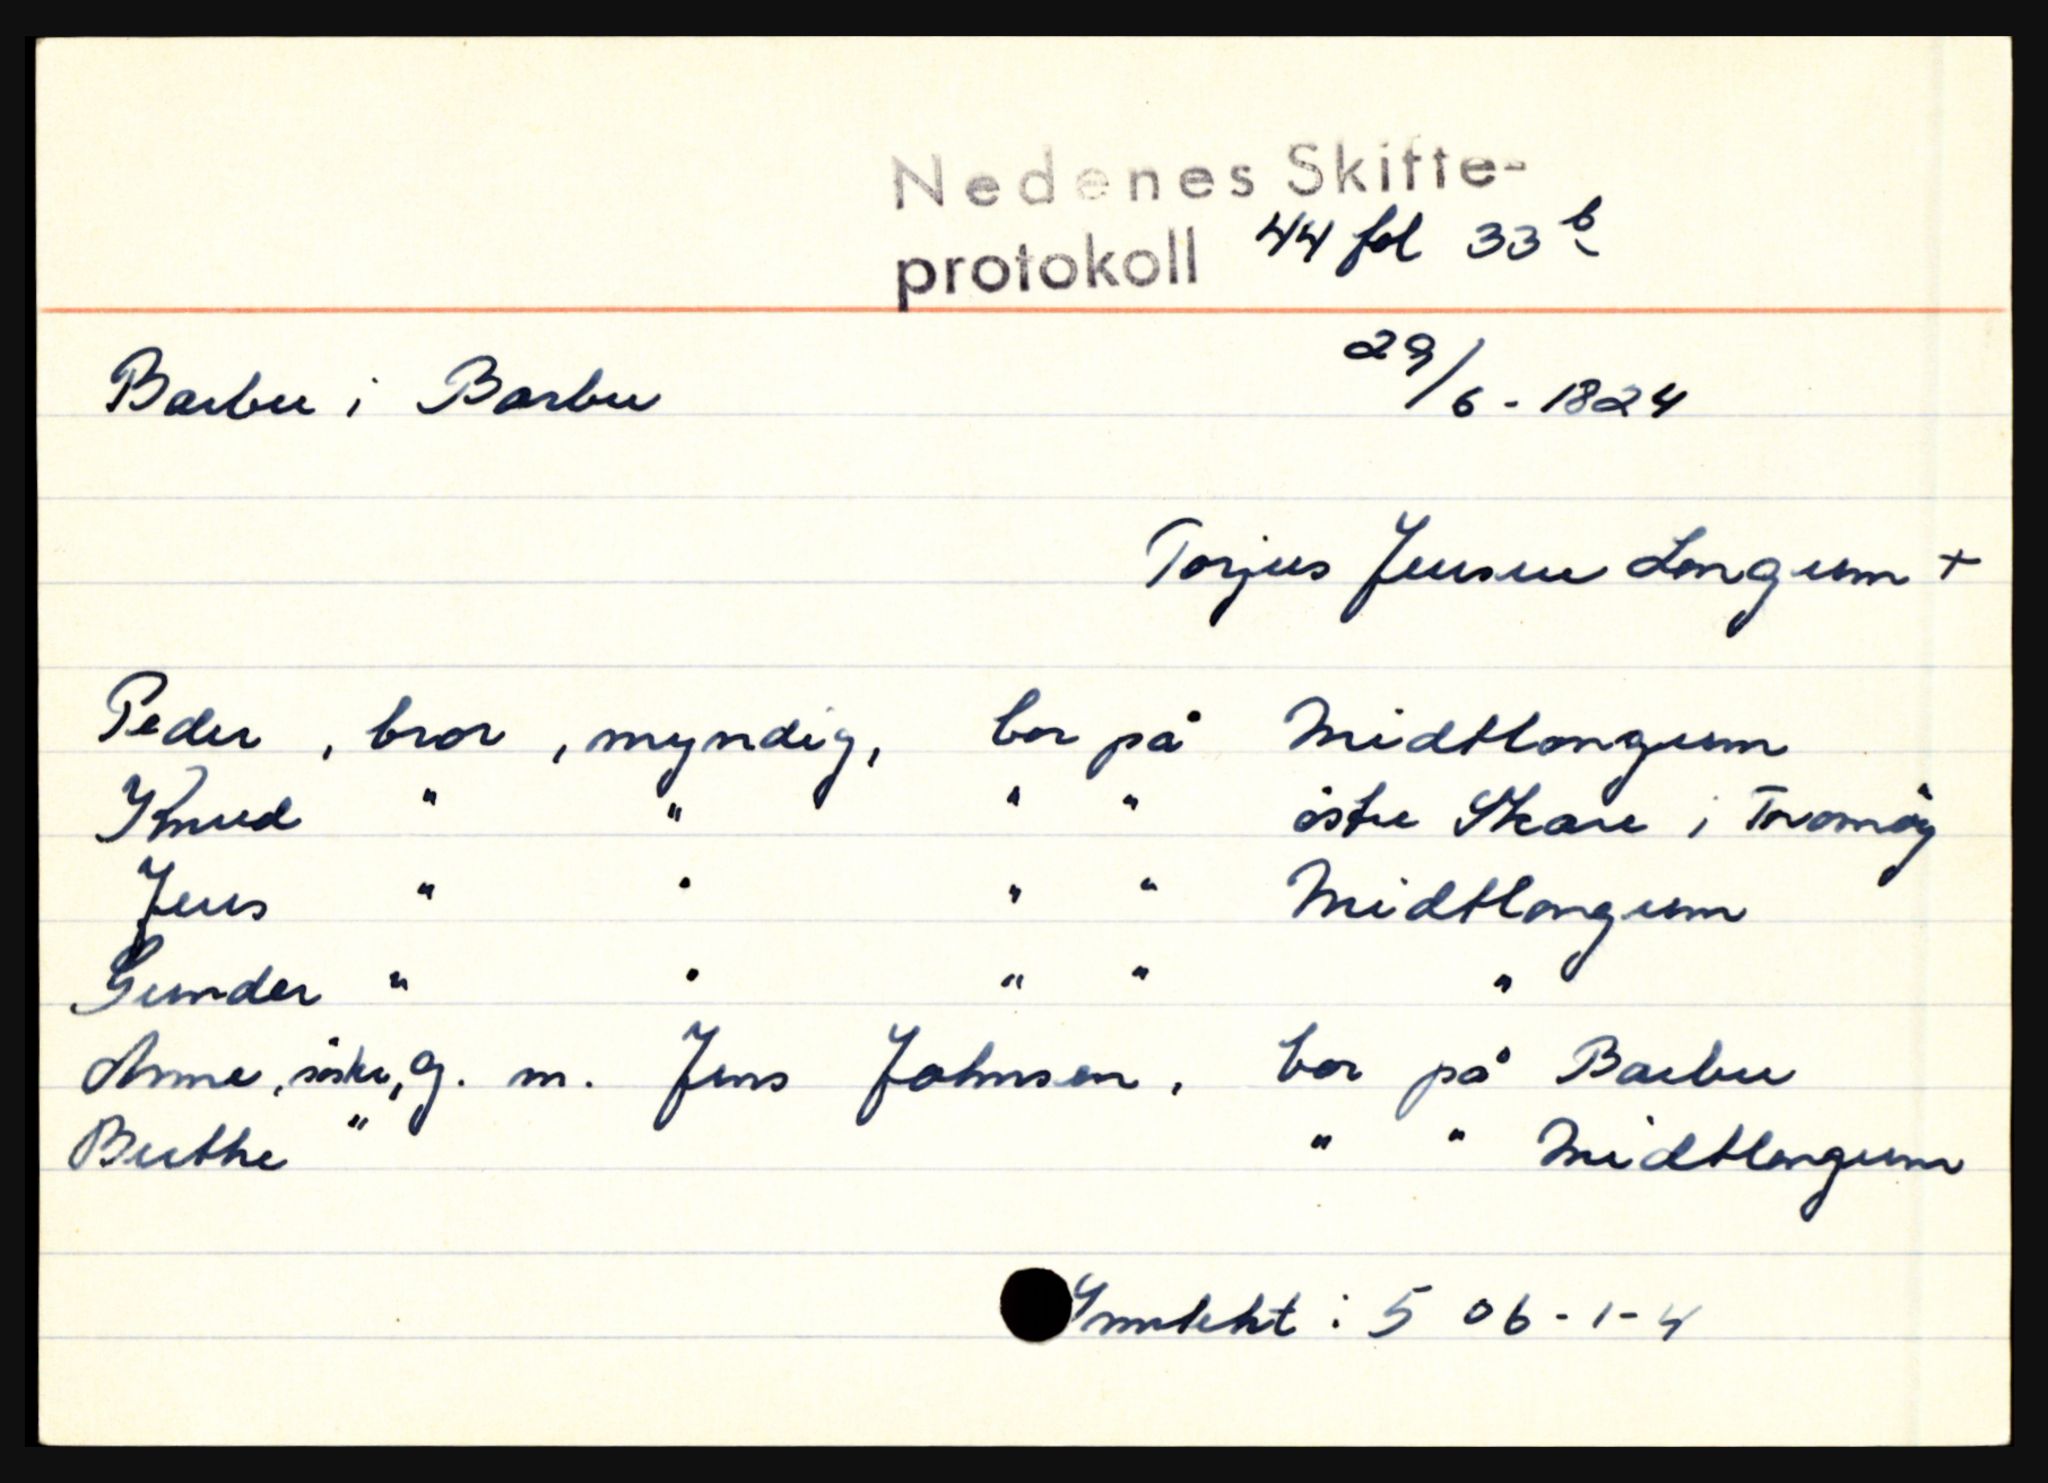 Nedenes Skifte-
protokoll 44 fol 33 b
Barbu i Barbu 29/6 - 1824
Torjus Jensen Longum +
Peder , bror , myndig, bor på Midtlongum
Knud " " " " östre Skare i Tromöy
Jens " " " " Midtlongum
Gunder " " " " "
Anne, söster, g. m. Jens Johnsen, bor på Barbu
Berthe " " " Midtlongum
Inntekt : 5 06 - 1 - 4